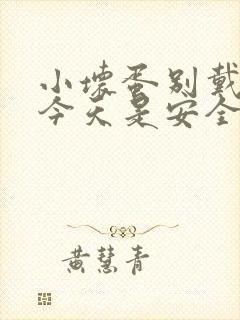 小壞蛋别戴
今天是安全
黄慧青